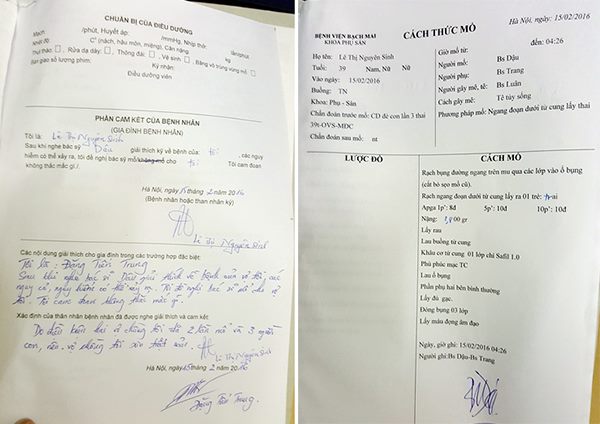 CHUẨN BỊ CỦA ĐIỀU DƯỠNG
Mạch: /phút, Huyết áp: /mmHg, Nhịp thở: lần/phút
Nhiệt độ: C° (nách, hậu môn, miệng), Cân nặng kg
Thử tháo: , Rửa dạ dày: , Thông đái: , Vệ sinh , Băng vô trùng vùng mổ
Bàn giao số lượng phim: Ký nhận:
Điều dưỡng viên
PHẦN CAM KẾT CỦA BỆNH NHÂN
(GIA ĐÌNH BỆNH NHÂN)
Tôi là: Lê Thị Nguyên Sinh
Sau khi nghe bác sỹ Dậu giải thích kỹ về bệnh của: tôi , các nguy
hiểm có thể xảy ra, tôi đề nghị bác sỹ mổ/không mổ cho tôi Tôi cam đoan
không thắc mắc gì./.
Hà Nội, ngày 15 tháng 2 năm 2016
(Bệnh nhân hoặc thân nhân ký)
Lê Thị Nguyên Sinh
Các nội dung giải thích cho gia đình trong các trường hợp đặc biệt:
Tôi là: Đặng Tiến Trung
Sau khi nghe bác sĩ Dậu giải thích về bệnh của vợ tôi, các
nguy cơ, nguy hiểm có thể xảy ra. Tôi đề nghị bác sĩ mổ cho vợ
tôi. Tôi cam đoan không thắc mắc gì.
Xác định của thân nhân bệnh nhân đã được nghe giải thích và cam kết:
Do vợ chồng tôi 2 lần mổ và 3 người
con, nên vợ chồng tôi xin
Lê Thị Nguyên Sinh
Hà Nội, ngày 15 tháng 2 năm 2016
Đặng Tiến Trung
BỆNH VIỆN BẠCH MAI
KHOA PHỤ SẢN
CÁCH THỨC MỔ
Hà Nội, ngày: 15/02/2016
Họ tên: Lê Thị Nguyên Sinh
Tuổi: 39 Nam, Nữ Nữ
Vào ngày: 15/02/2016
Buồng: TN
Khoa: Phụ - Sản
Giờ mổ từ: đến: 04:26
Người mổ: Bs Dậu
Người phụ: Bs Trang
Người gây mê, tê: Bs Luân
Cách gây mê: Tê tủy sống
Chẩn đoán trước mổ: CD đẻ con lần 3 thai
39t-OVS-MDC
Phương pháp mổ: Mổ ngang đoạn dưới tử cung lấy thai
Chẩn đoán sau mổ: nt
LƯỢC ĐỒ
CÁCH MỔ
Rạch bụng đường ngang trên mu qua các lớp vào ổ bụng
(cắt bỏ sẹo mổ cũ).
Rạch ngang đoạn dưới tử cung lấy ra 01 trẻ: trai
Apga 1p': 8đ 5p': 10đ 10p': 10đ
Nặng: 00 gr
Lấy rau
Lau buồng tử cung
Khâu cơ tử cung 01 lớp chỉ Safil 1.0
Phủ phúc mạc TC
Lau ổ bụng
Phần phụ hai bên bình thường
Lấy đủ gạc.
Đóng bụng 03 lớp
Lấy máu đọng âm đạo
Ngày, giờ ghi: 15/02/2016 04:26
Người ghi:Bs Dậu-Bs Trang